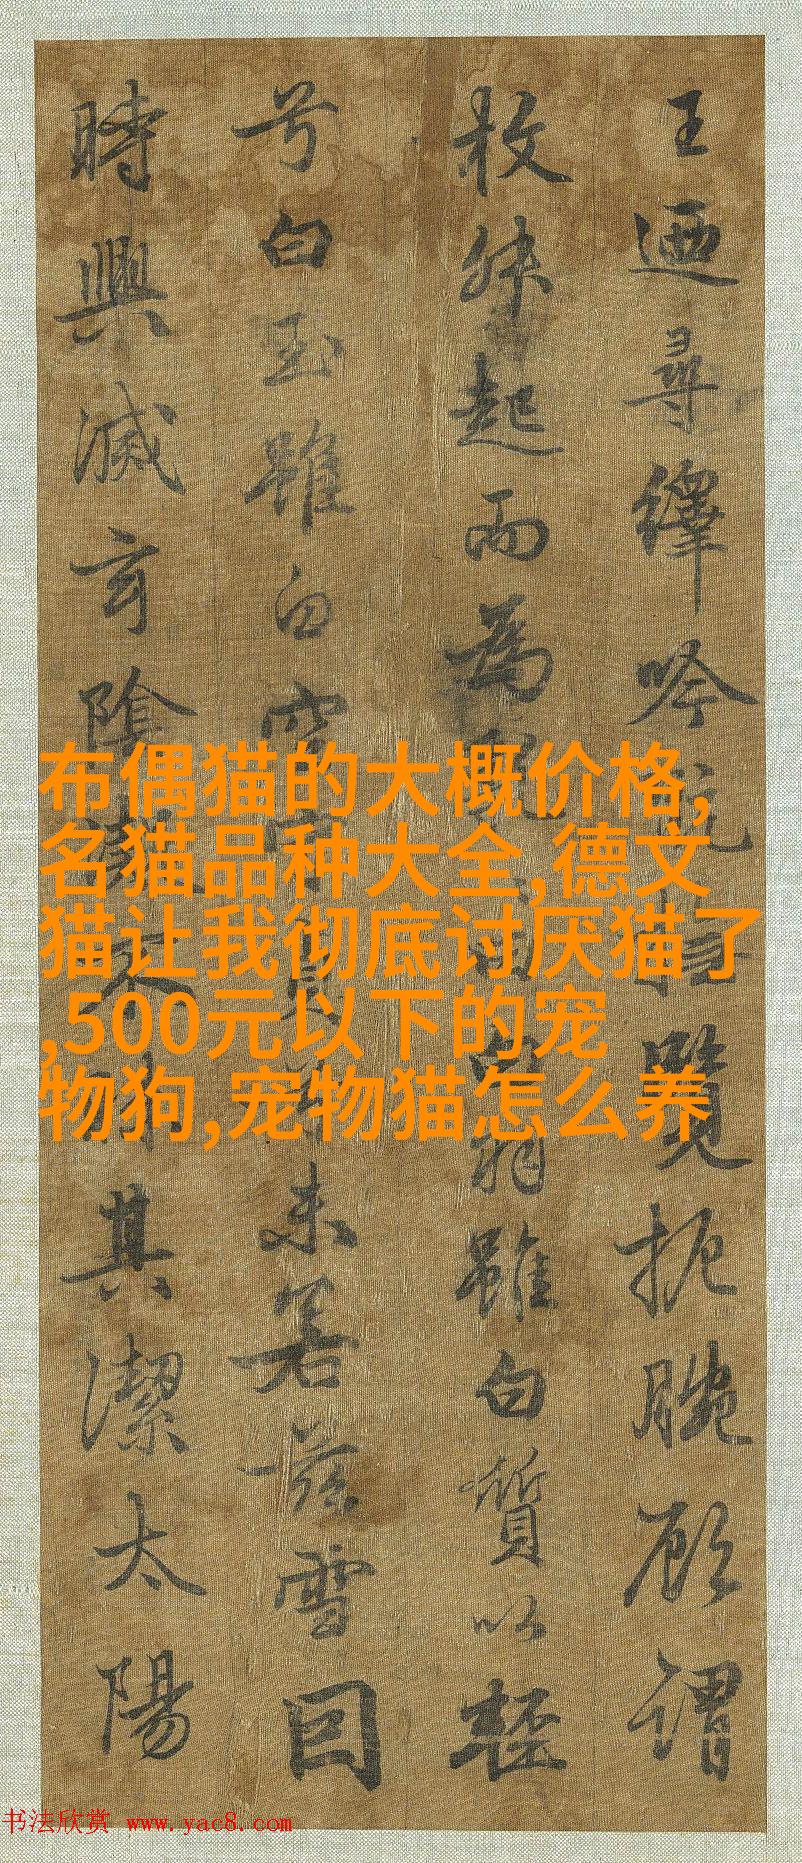 王迺尋繹吟覽扼腕顧謂
枚叔起而為羽雖白質以輕
兮白玉雖白空守貞兮未若茲雪因
時興滅玄陰凝不昧其潔太陽
布偶猫的大概价格,
名猫品种大全,德文
猫让我彻底讨厌猫了
,500元以下的宠
物狗,宠物猫怎么养
书法欣赏 www.yac8.com